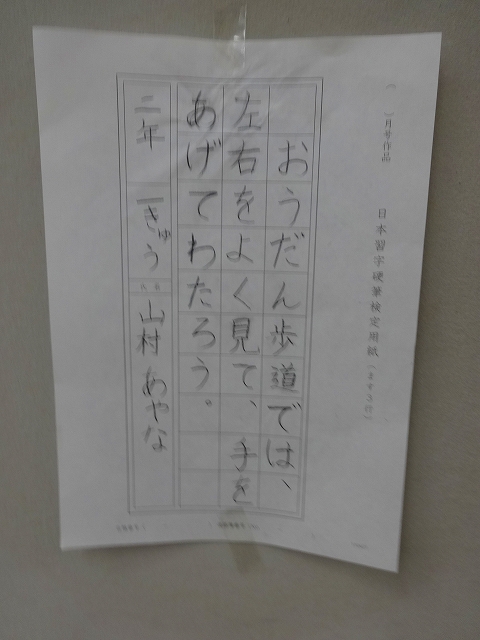 月号作品
日本習字硬筆検定用紙(ます8行)
おうだん歩道では、
左右をよく見て、手を
あげてわたろう。
二年 一きゅう 氏名 山村 あやな